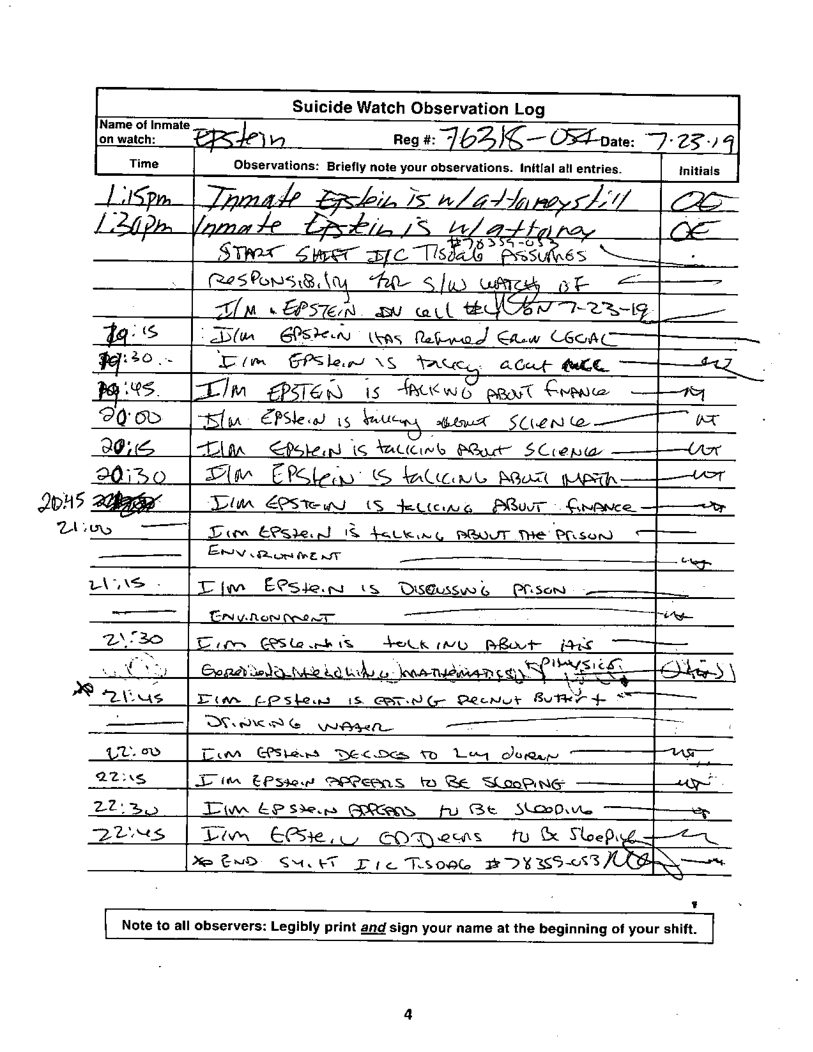 Suicide Watch Observation Log
Name of Inmate on watch: Epstein Reg #: 76318-054 Date: 7-23-19
Time Observations: Briefly note your observations. Initial all entries. Initials
1:15pm Inmate Epstein is w/ attorney still OE
1:30pm Inmate Epstein is w/ attorney OE
#78359-053
START SHIFT I/C TISDAG ASSUMES
RESPONSIBILITY FOR S/W WATCH OF
I/M EPSTEIN IN CELL ON 7-23-19
19:15 I/M EPSTEIN HAS RETURNED FROM LEGAL
19:30 I/M EPSTEIN IS talking about
19:45 I/M EPSTEIN IS TALKING ABOUT FINANCE
20:00 I/M EPSTEIN IS talking about SCIENCE
20:15 I/M EPSTEIN IS talking ABOUT SCIENCE
20:30 I/M EPSTEIN IS talking ABOUT MATH
20:45 I/M EPSTEIN IS talking ABOUT FINANCE
21:00 I/M EPSTEIN IS talking ABOUT THE PRISON
ENVIRONMENT
21:15 I/M EPSTEIN IS DISCUSSING PRISON
ENVIRONMENT
21:30 I/M EPSTEIN IS talking ABOUT HIS
MATHEMATICS + PHYSICS
21:45 I/M EPSTEIN IS EATING PEANUT BUTTER +
DRINKING WATER
22:00 I/M EPSTEIN DECIDES TO LAY DOWN
22:15 I/M EPSTEIN APPEARS TO BE SLEEPING
22:30 I/M EPSTEIN APPEARS TO BE SLEEPING
22:45 I/M EPSTEIN APPEARS TO BE SLEEPING
END SHIFT I/C TISDAG #78359-053
Note to all observers: Legibly print and sign your name at the beginning of your shift.
4